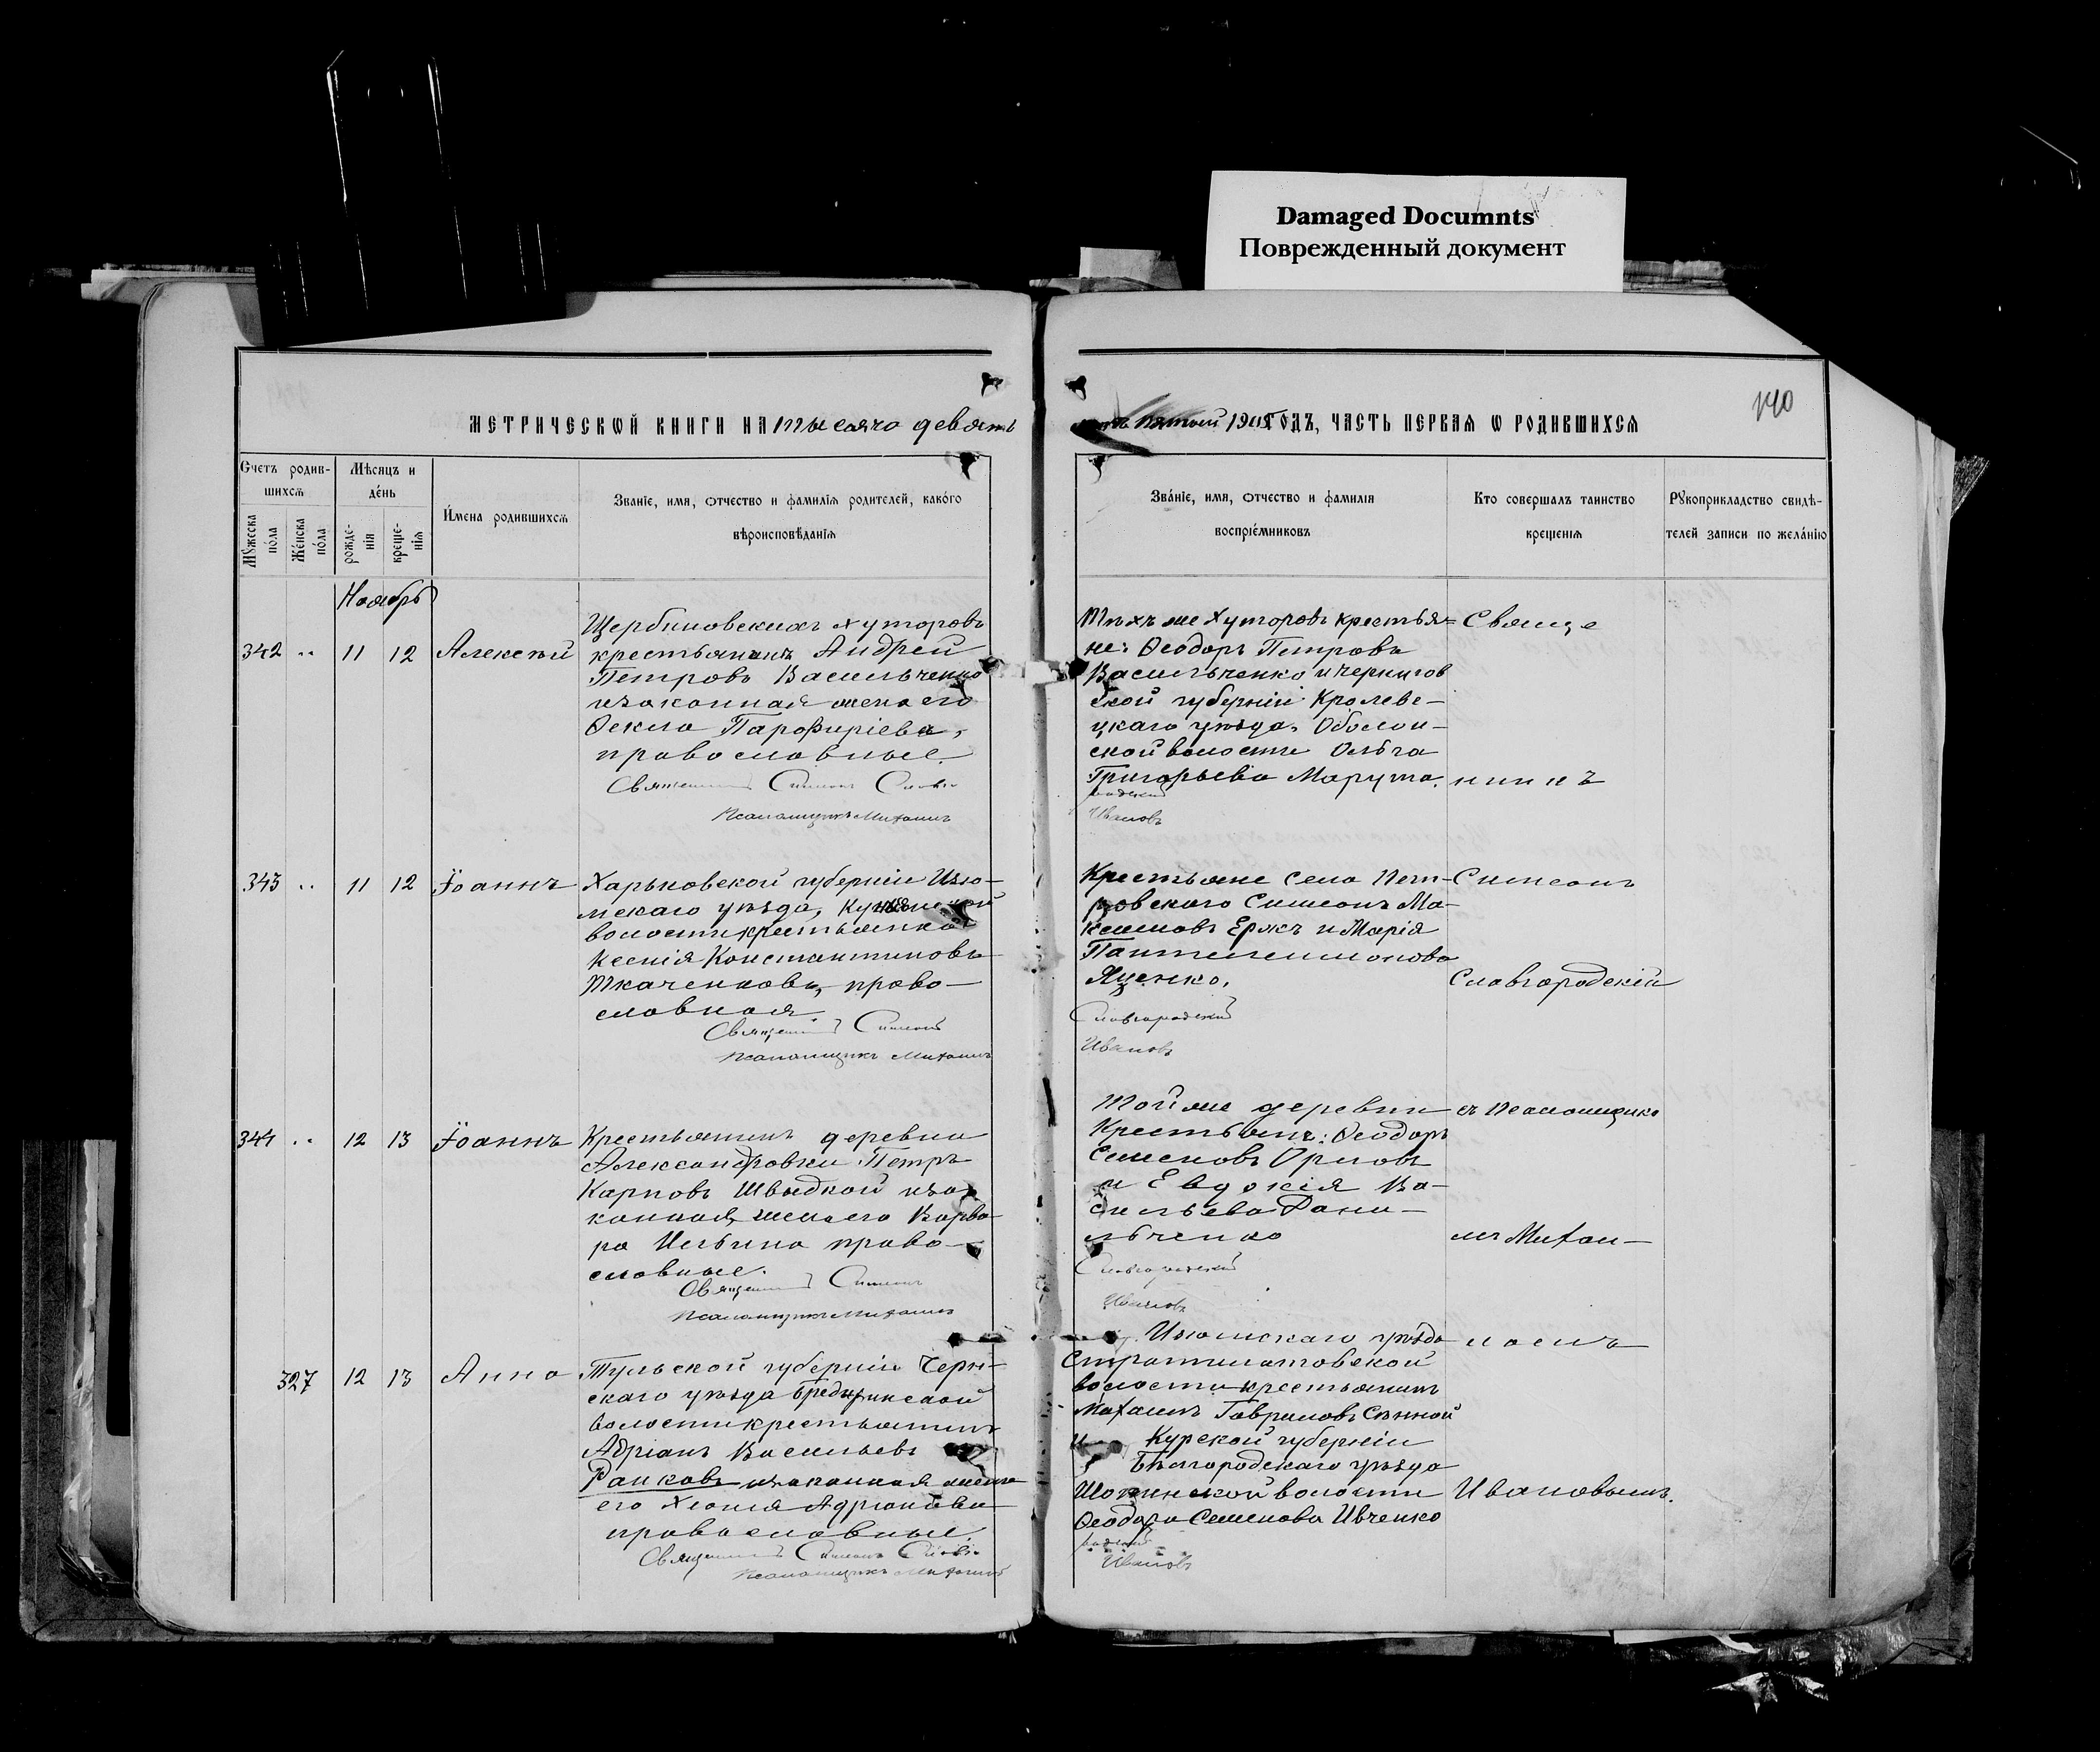 Damaged Documnts
Поврежденный документ
140
МЕТРИЧЕСКОЙ КНИГИ НА тысяча девять
сотъ пятый 1905 ГОДЪ, ЧАСТЬ ПЕРВАЯ О РОДИВШИХСЯ
Счетъ родив-
шихся
Мѣсяцъ и
день
Имена родившихся
Званіе, имя, отчество и фамилія родителей, какого
вѣроисповѣданія
Мужеска
пола
Женска
пола
рожде-
нія
креще-
нія
Званіе, имя, отчество и фамилія
воспріемниковъ
Кто совершалъ таинство
крещенія
Рукоприкладство свидѣ-
телей записи по желанію
Ноябрь
342 " 11 12 Алексѣй
Щербиновскихъ хуторовъ
крестьянинъ Андрей
Петровъ Васильченко
изаконная жена его
Ѳекла Парфиріева,
православные.
Священникъ Симеонъ Славго
Псаломщикъ Михаилъ
Тѣхъ же Хуторовъ крестья=
не: Ѳеодоръ Петровъ
Васильченко и Чернигов
ской губерніи Кролеве-
цкаго уѣзда, Оболон-
ской волости Ольга
Григорьева Марута.
родскій
Ивановъ
Свяще
нникъ
343 " 11 12 Іоаннъ
Харьковской губерніи Изю-
мскаго уѣзда,
волости крестьянка
Ксенія Константинова
Ткаченкова, право-
славная.
Священникъ Симеонъ
Псаломщикъ Михаилъ
Крестьяне села Пет-
ровскаго Симеонъ Ма-
ксимовъ Ержъ и Марія
Пантелеимонова
Яценко.
Славгородскій
Ивановъ
Симеонъ
Славгородскій
344 " 12 13 Іоаннъ
Крестьянинъ деревни
Александровки Петръ
Карповъ Швыдкой иза
конная жена его Варва
ра Ильина право-
славные.
Священникъ Симеонъ
Псаломщикъ Михаилъ
Той же деревни
Крестьяне: Ѳеодоръ
Семеновъ Орловъ
и Евдокія Ва-
сильева Дани-
льченко
Славгородскій
Ивановъ
съ Псаломщико
мъ Михаи-
327 12 13 Анна
Тульской губерніи Черн-
скаго уѣзда
волости крестьянинъ
Адріанъ Васильевъ
Ранковъ изаконная жена
его Хіонія Адріанова
православные.
Священникъ Симеонъ Славго
Псаломщикъ Михаилъ
Изюмскаго уѣзда
Стратилатовской
волости крестьянинъ
Михаилъ Гавриловъ Сѣнной
и Курской губерніи
Бѣлгородскаго уѣзда
волости
Ѳеодора Семенова Ивченко
родскій
Ивановъ
ломъ
Ивановымъ.